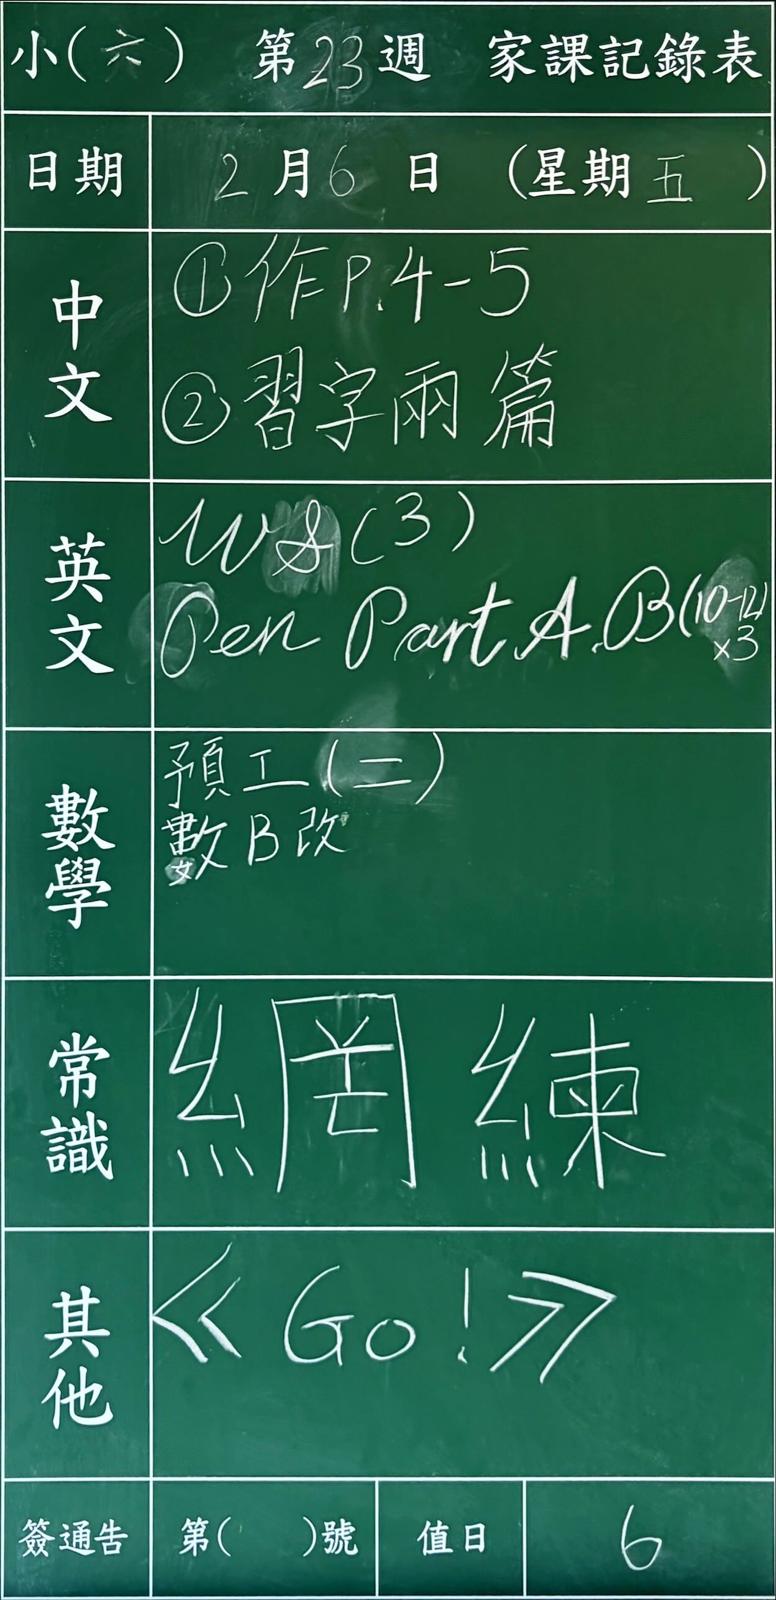 小(六) 第23週 家課記錄表
日期 2月6日 (星期五)
中文
①作P.4-5
②習字兩篇
英文
WS(3)
Pen Part A.B(10-12)
×3
數學
預工(二)
數B改
常識
網練
其他
《Go!》
簽通告 第( )號 值日 6